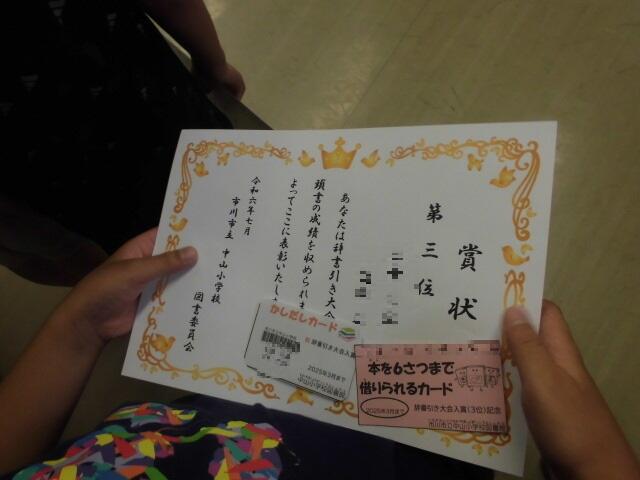 賞状
第三位
あなたは辞書引き大会
頭書の成績を収められま
よってここに表彰いたしま
令和六年七月
市川市立 中山小学校
図書委員会
かしだしカード
辞書引き大会入賞
2025年3月まで
本を6さつまで
借りられるカード
2025年3月まで
辞書引き大会入賞(3位)記念
市川市立中山小学校図書館